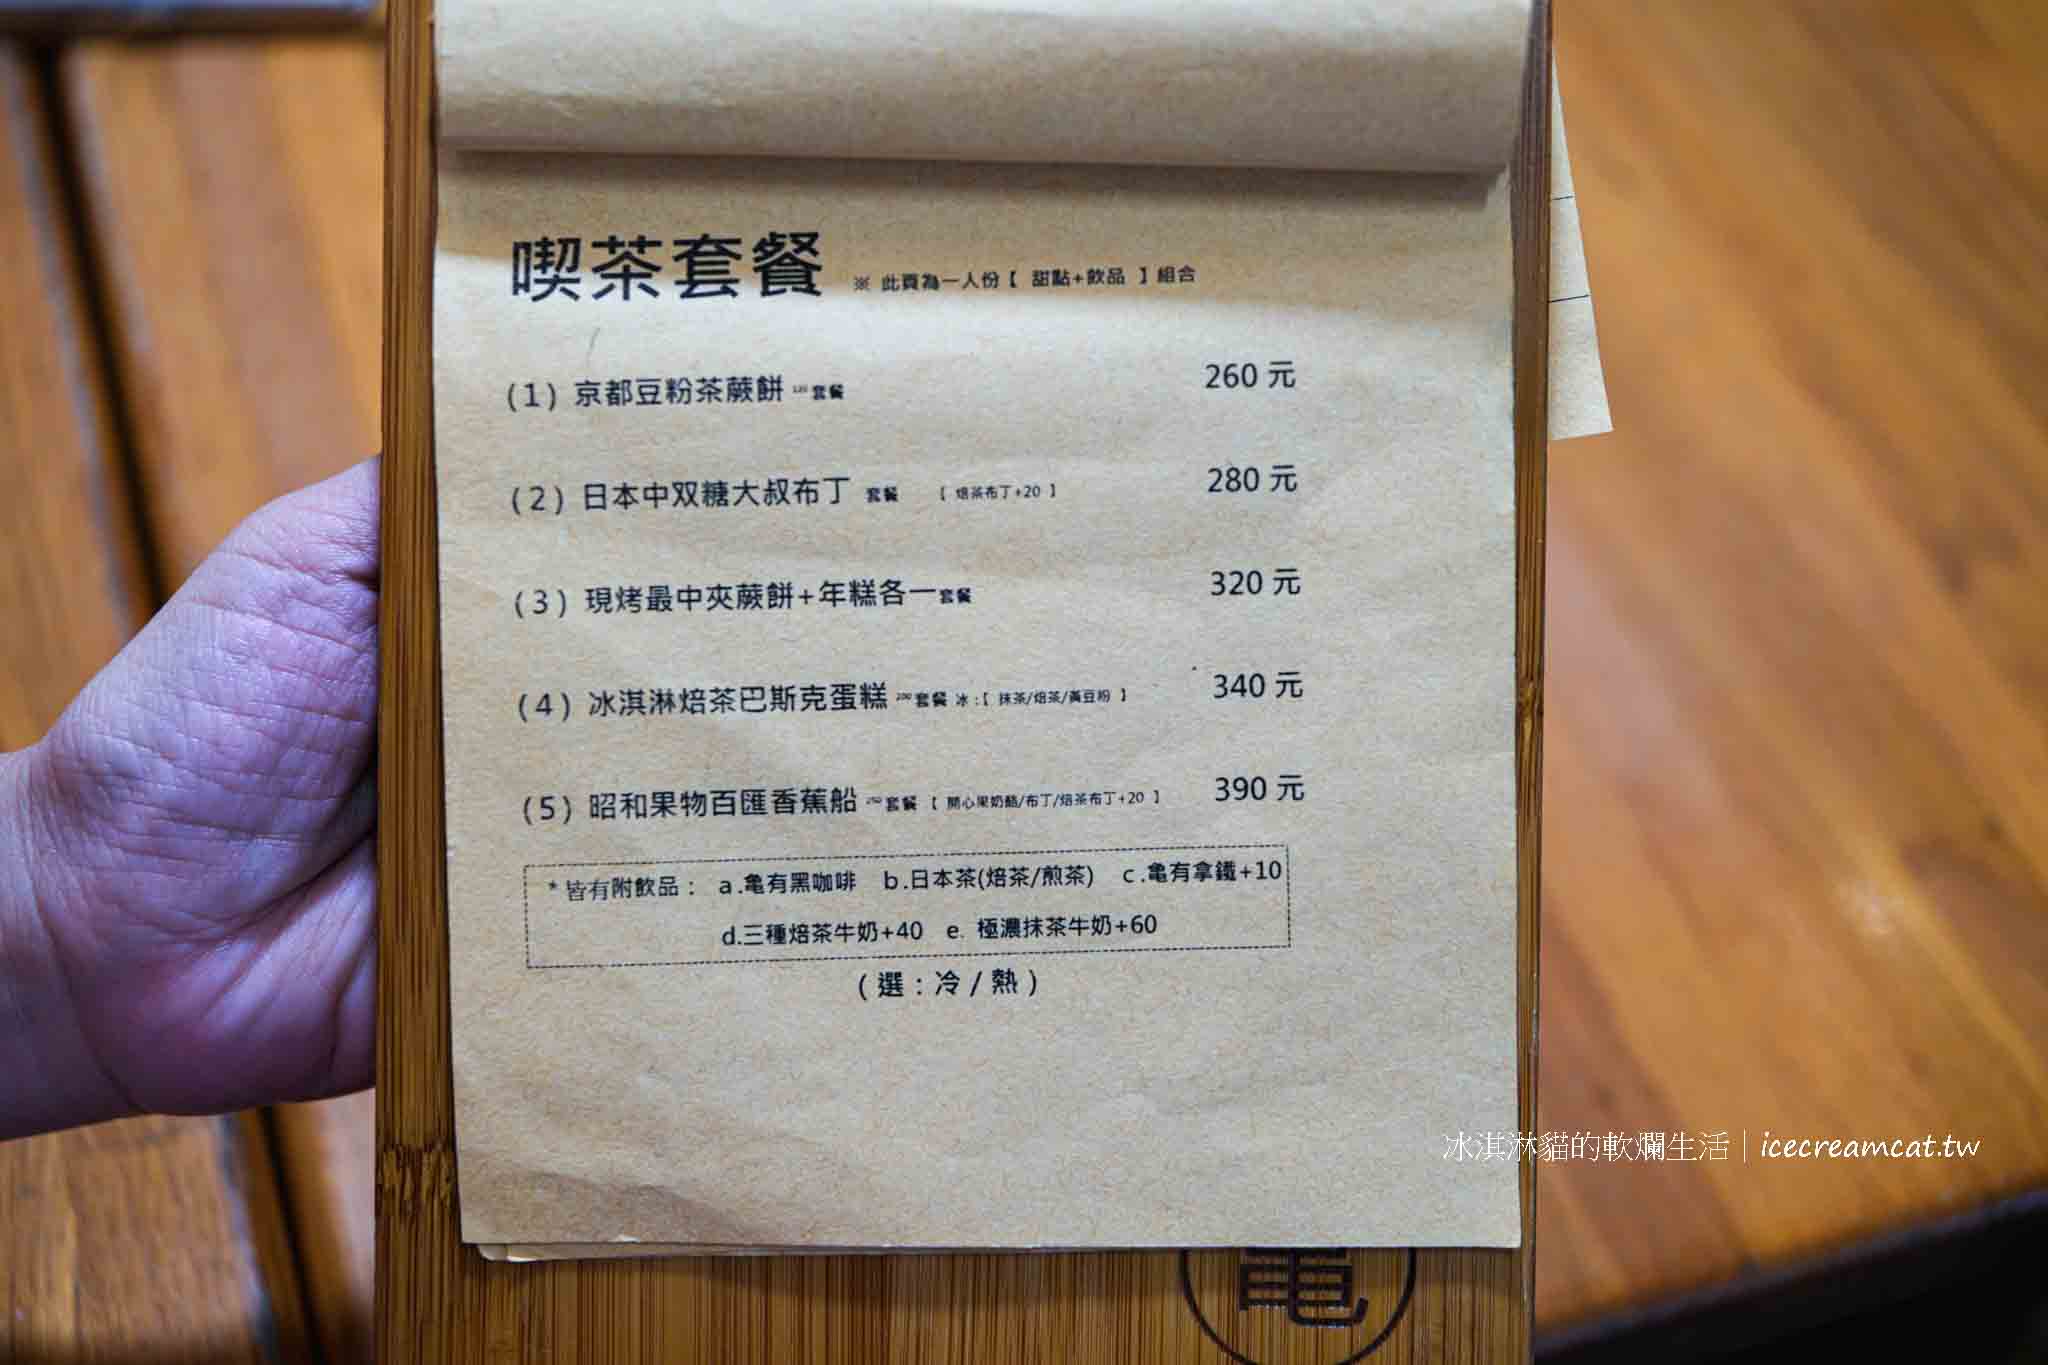 喫茶套餐 ※ 此頁為一人份【 甜點+飲品 】組合
(1) 京都豆粉茶蕨餅 120 套餐 260 元
(2) 日本中双糖大叔布丁 套餐 【 焙茶布丁+20 】 280 元
(3) 現烤最中夾蕨餅+年糕各一套餐 320 元
(4) 冰淇淋焙茶巴斯克蛋糕 200 套餐 冰:【 抹茶/焙茶/黃豆粉 】 340 元
(5) 昭和果物百匯香蕉船 250 套餐 【 開心果奶酪/布丁/焙茶布丁+20 】 390 元
*皆有附飲品: a.亀有黑咖啡 b.日本茶(焙茶/煎茶) c.亀有拿鐵+10
d.三種焙茶牛奶+40 e. 極濃抹茶牛奶+60
(選:冷/熱)
冰淇淋貓的軟爛生活|icecreamcat.tw
亀